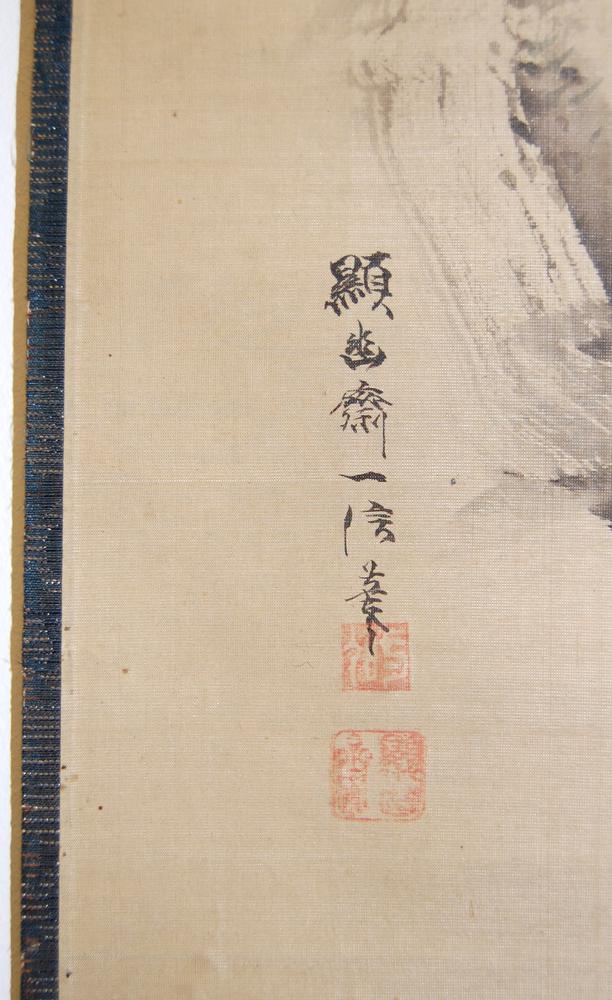 顯幽齋一信筆